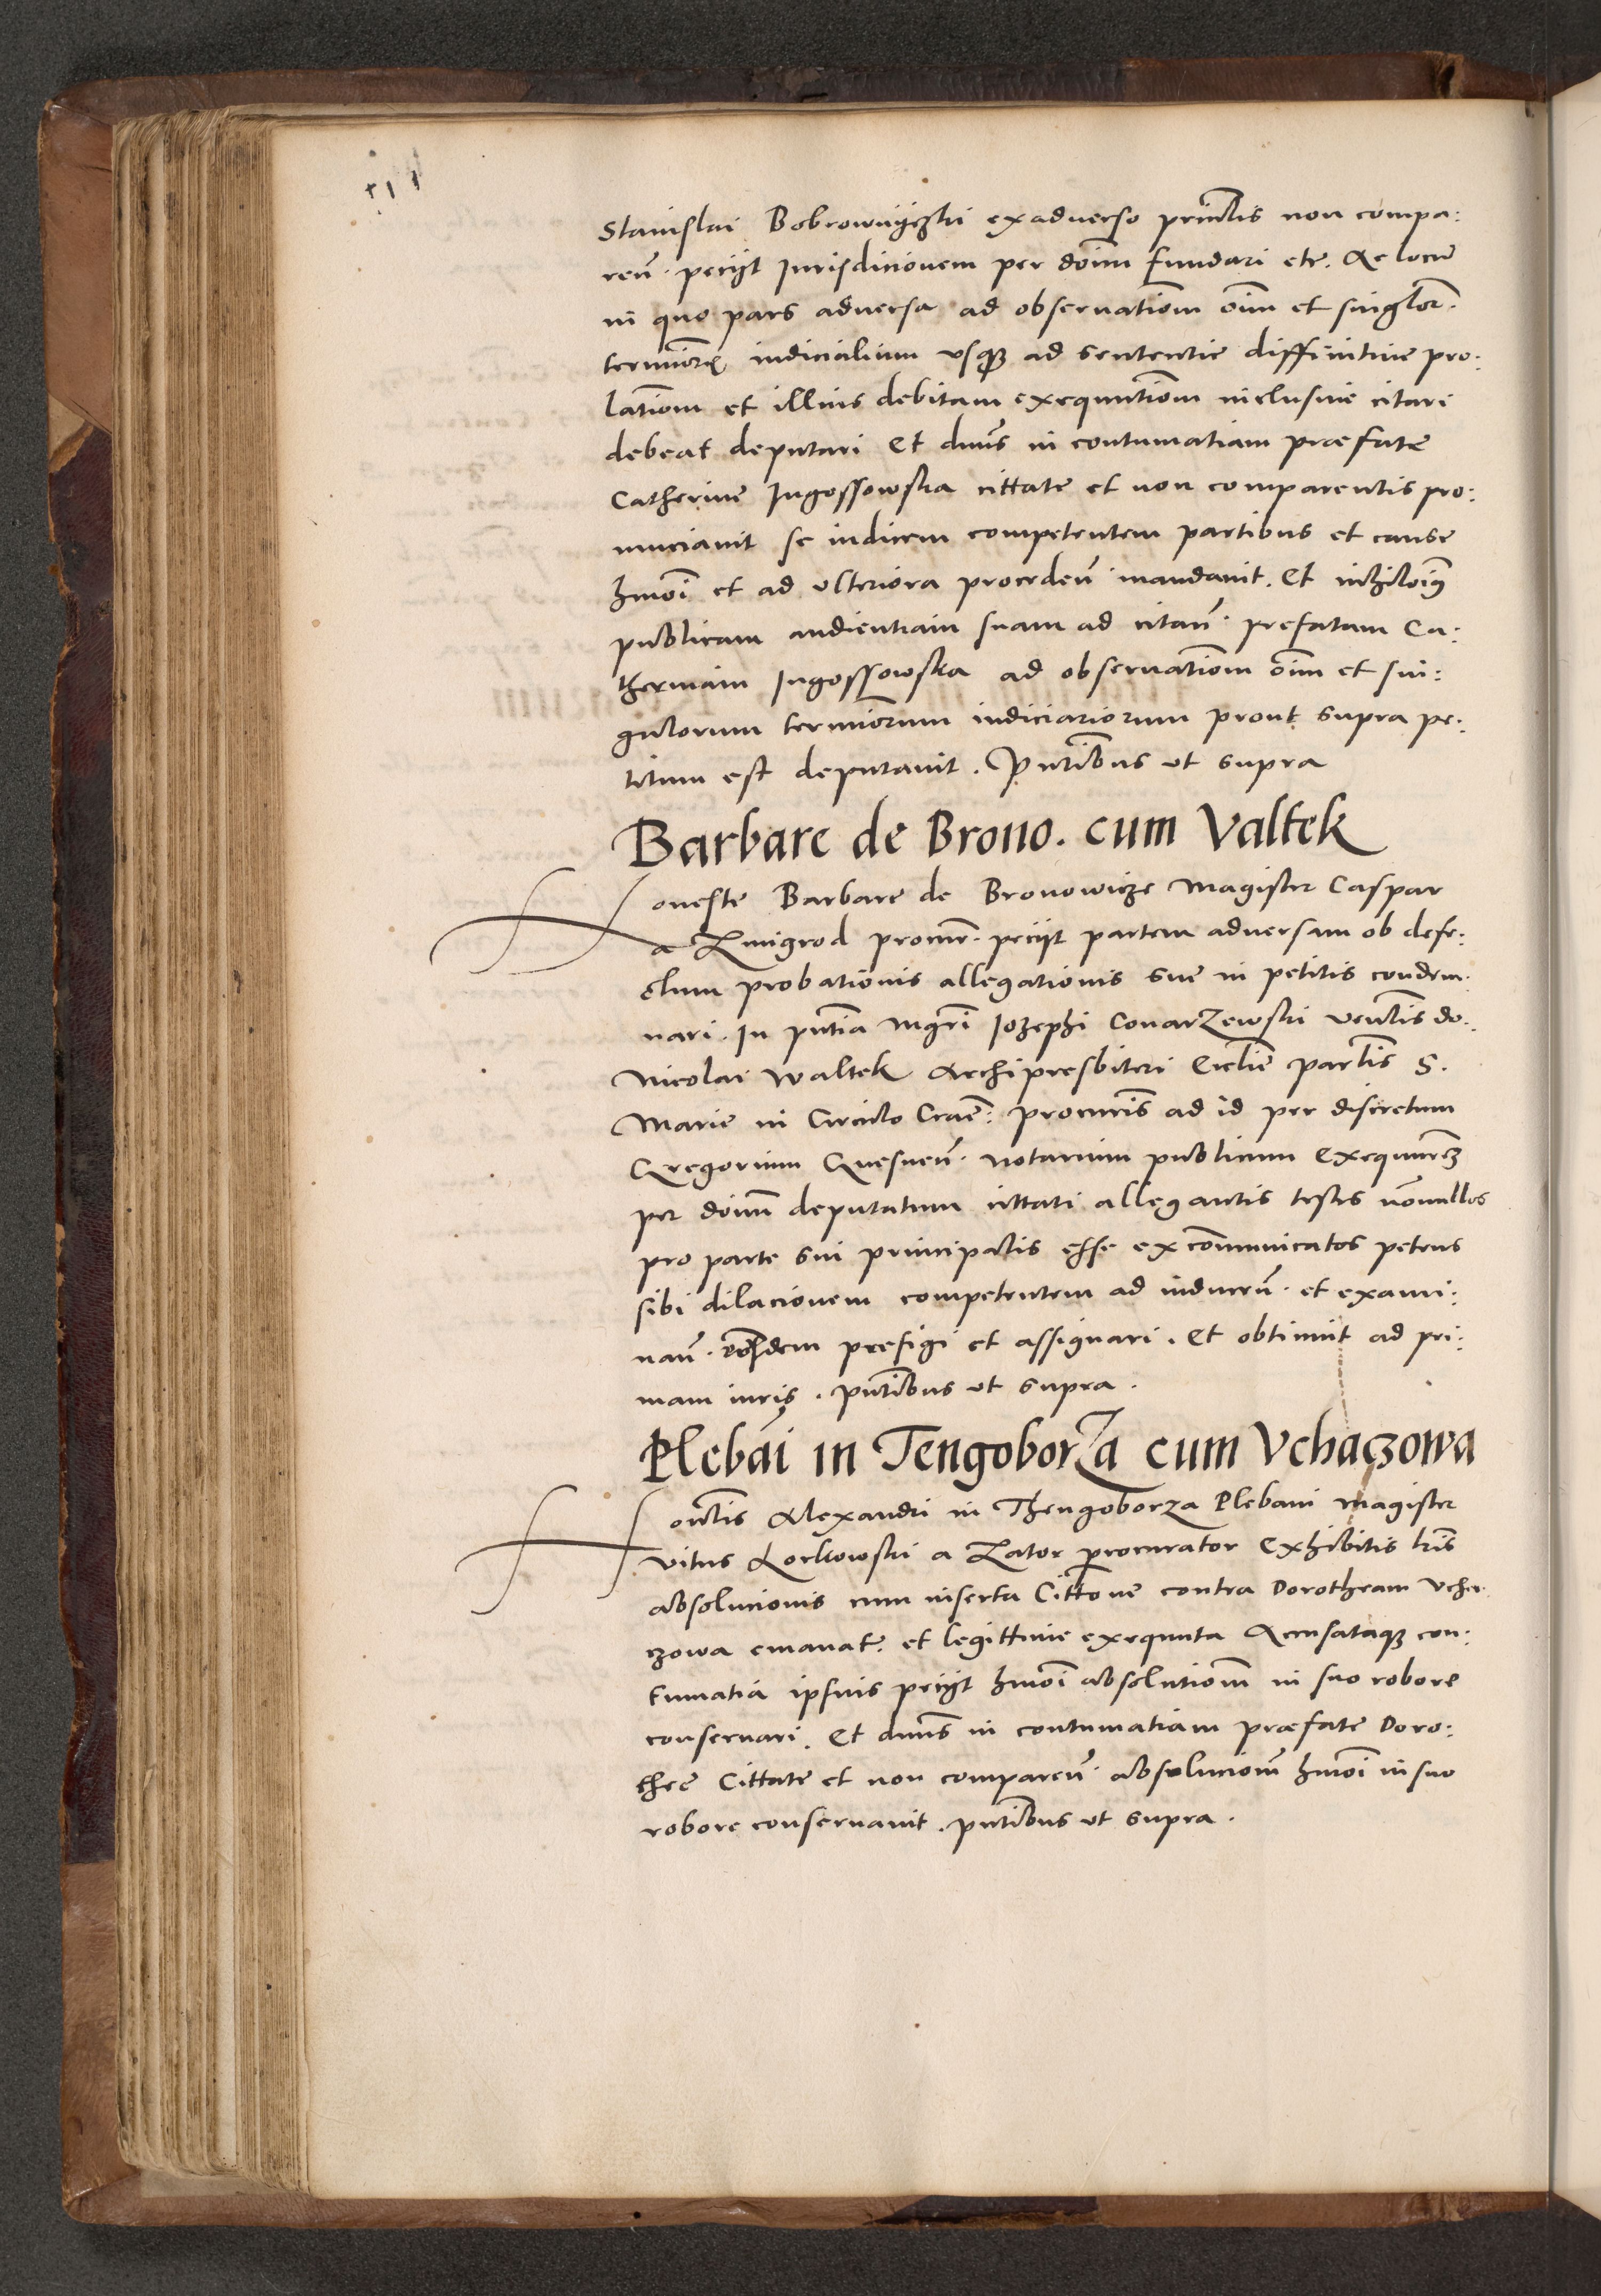 Stanislai Bobrownyczki ex adverso principlis non compa:
ren̄. peciit Jurisdicionem per dnm̄ fundari etc. Ac locum
in quo pars adversa ad observatiom̄ oīm et singlor.
termiorꝝ iudicialium vsqꝫ ad sententie diffinitive pro:
latiom̄ et illius debitam exequutiom̄ inclusive citari
debeat deputari Et dnūs in contumatiam præfate
Catherine Jugossowska cittate et non comparentis pro:
nunciavit se iudicem competentem partibus et cause
hmōi et ad vlteriora proceden̄. mandavit. Et nihilōīꝰ
publicam audientiam suam ad citan̄. prefatam Ca:
therinam Jugossowska ad observatiom̄ oīm et sin:
gulorum termiorum iudiciariorum prout supra pe:
titum est deputavit. Pn̄tibus ut supra
Barbare de Brono. cum Valtek
Honeste Barbare de Bronowicze Magister Caspar
a Zmigrod procur̄. peciit partem adversam ob defe:
ctum probationis allegationis sue in petitis condem.
nari. In pn̄tia mgrī Iozephi Conarzewski ven̄tis do.
Nicolai Waltek Archipresbiteri Eccliē parlis S.
Marie in Circulo Crac̄: procuris ad id per discretum
Gregorium notarium publicum
per dnm̄ deputatum cittati allegantis testes nōnullos
pro parte sui principalis esse excōmunicatos petens
sibi dilacionem competentem ad inducen̄. et exami:
nan̄. eosdem prefigi et assignari. Et obtinuit ad pri:
mam iuris. pn̄tibus ut supra.
Plebāi in Tengoborza cum Vchaczowa
Hon̄tis Alexandri in Thengoborza Plebani Magister
Vitus Lorkowski a Zator procurator Exhibitis lr̄is
absolucionis cum inserta Cittōne contra Dorotheam Vcha.
czowa emanat. et legittime exequuta Accusataqꝫ con:
tumatia ipsius peciit hmōi absolutiom̄ in suo robore
conservari. Et dnūs in contumatiam præfate Doro:
thee Cittate et non comparen̄. absoluciom̄ hmōi in suo
robore conservavit. pn̄tibus ut supra.